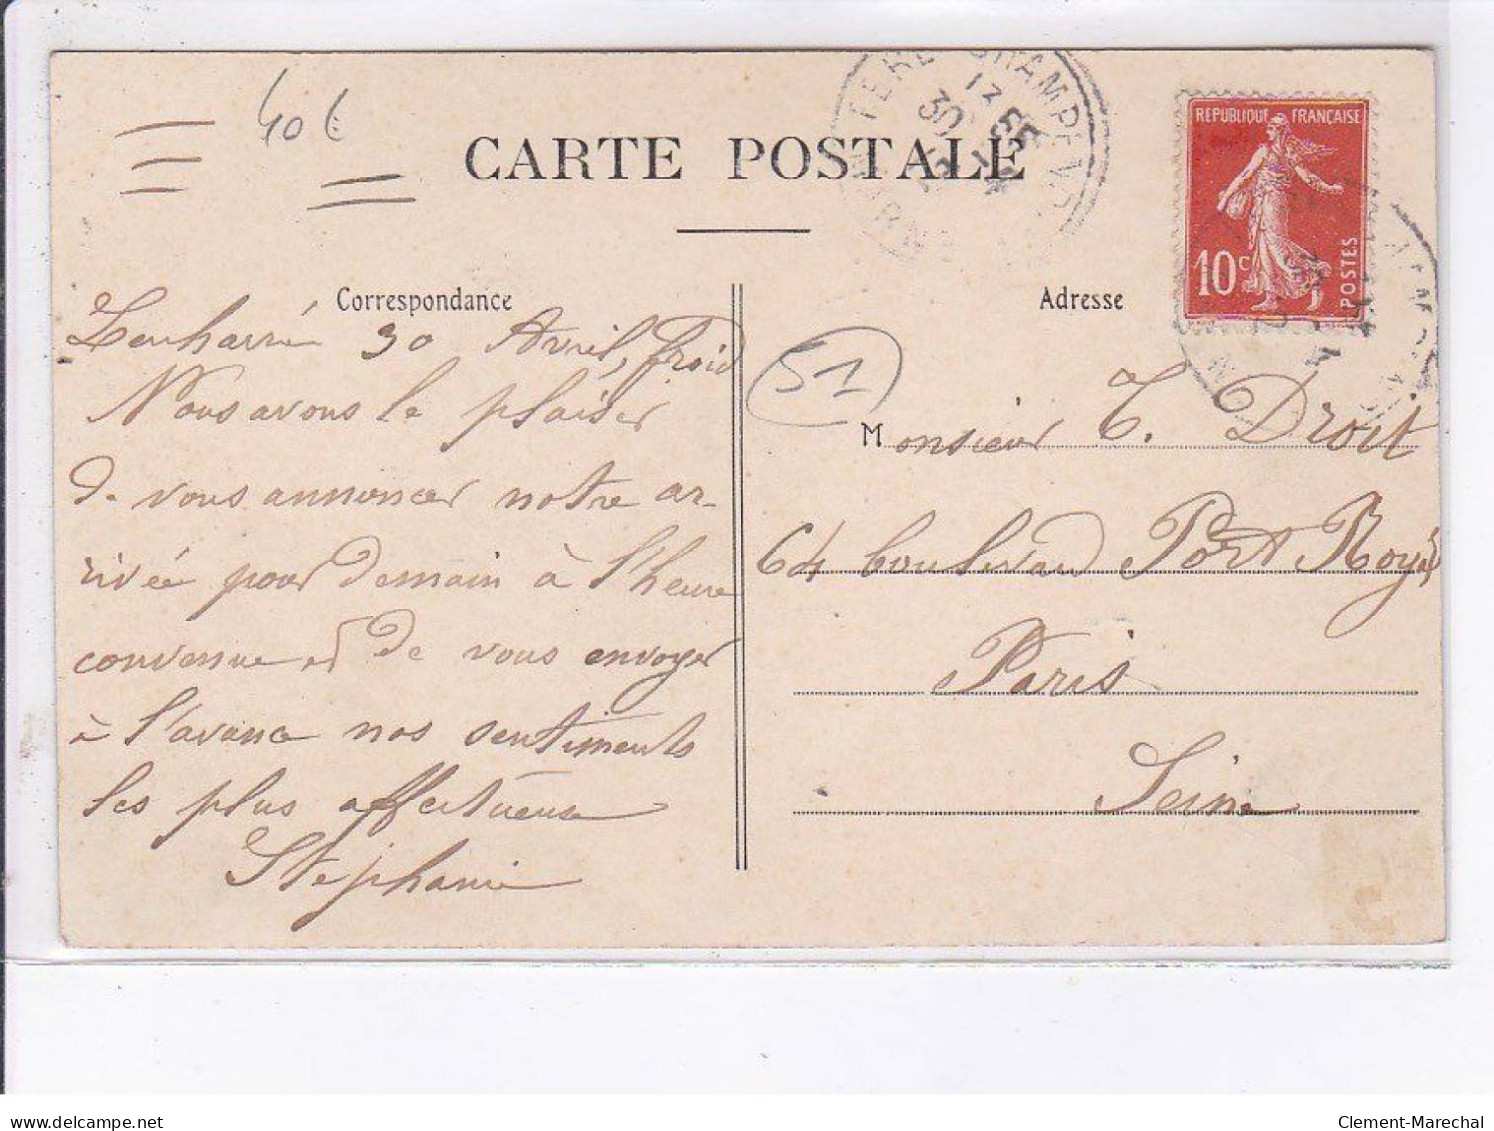 40€
CARTE POSTALE
REPUBLIQUE FRANÇAISE
10c
POSTES
Correspondance
Adresse
51
Lenharrée 30 Avril, froid
Nous avons le plaisir
de vous annoncer notre ar-
rivée pour demain à l'heure
convenue et de vous envoyer
à l'avance nos sentiments
les plus affectueux
Stephanie
Monsieur T. Droit
64 boulevard Port Royal
Paris
Seine
Clement-Marechal